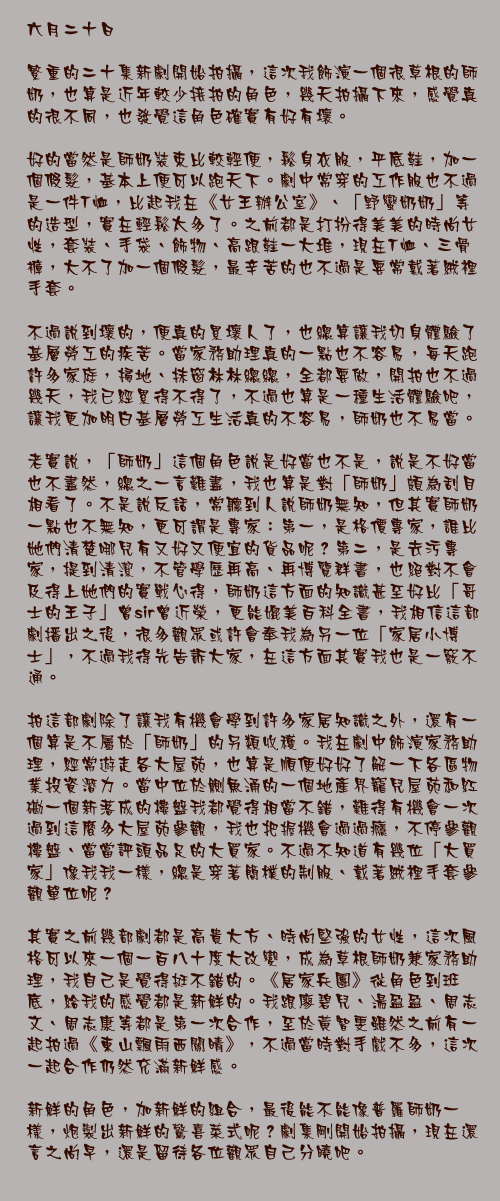 六月二十日
繁重的二十集新劇開始拍攝，這次我飾演一個很草根的師
奶，也算是近年較少接拍的角色，幾天拍攝下來，感覺真
的很不同，也發覺這角色確實有好有壞。
好的當然是師奶裝束比較輕便，鬆身衣服，平底鞋，加一
個假髮，基本上便可以跑天下。劇中常穿的工作服也不過
是一件T恤，比起我在《女王辦公室》、「野蠻奶奶」等
的造型，實在輕鬆太多了。之前都是打扮得美美的時尚女
性，套裝、手袋、飾物、高跟鞋一大堆，現在T恤、三骨
褲，大不了加一個假髮，最辛苦的也不過是要常戴著膠裡
手套。
不過說到壞的，便真的是壞人了，也總算讓我切身體驗了
基層勞工的疾苦。當家務助理真的一點也不容易，每天跑
許多家庭，掃地、抹窗林林總總，全都要做，開拍也不過
幾天，我已經累得不得了，不過也算是一種生活體驗吧，
讓我更加明白基層勞工生活真的不容易，師奶也不易當。
老實說，「師奶」這個角色說是好當也不是，說是不好當
也不盡然，總之一言難盡，我也算是對「師奶」頗為刮目
相看了。不是說反話，常聽到人說師奶無知，但其實師奶
一點也不無知，更可謂是專家：第一，是格價專家，誰比
她們清楚哪兒有又好又便宜的貨品呢？第二，是去污專
家，提到清潔，不管學歷再高、再博覽群書，也絕對不會
及得上她們的實戰心得，師奶這方面的知識甚至好比「哥
士的王子」曾sir曾近榮，更能媲美百科全書，我相信這部
劇播出之後，很多觀眾或許會奉我為另一位「家居小博
士」，不過我得先告訴大家，在這方面其實我也是一竅不
通。
拍這部劇除了讓我有機會學到許多家居知識之外，還有一
個算是不屬於「師奶」的另類收穫。我在劇中飾演家務助
理，經常遊走各大屋苑，也算是順便好好了解一下各區物
業投資潛力。當中位於鰂魚涌的一個地產界寵兒屋苑和紅
磡一個新落成的樓盤我都覺得相當不錯，難得有機會一次
過到這麼多大屋苑參觀，我也把握機會過過癮，不停參觀
樓盤、當當評頭品足的大買家。不過不知道有幾位「大買
家」像我我一樣，總是穿著簡樸的制服、戴著膠裡手套參
觀單位呢？
其實之前幾部劇都是高貴大方、時尚堅強的女性，這次風
格可以來一個一百八十度大改變，成為草根師奶兼家務助
理，我自己是覺得挺不錯的。《居家兵團》從角色到班
底，給我的感覺都是新鮮的。我跟廖碧兒、湯盈盈、周志
文、周志康等都是第一次合作，至於黃智雯雖然之前有一
起拍過《東山飄雨西關晴》，不過當時對手戲不多，這次
一起合作仍然充滿新鮮感。
新鮮的角色，加新鮮的組合，最後能不能像普羅師奶一
樣，炮製出新鮮的驚喜菜式呢？劇集剛開始拍攝，現在還
言之尚早，還是留待各位觀眾自己分曉吧。